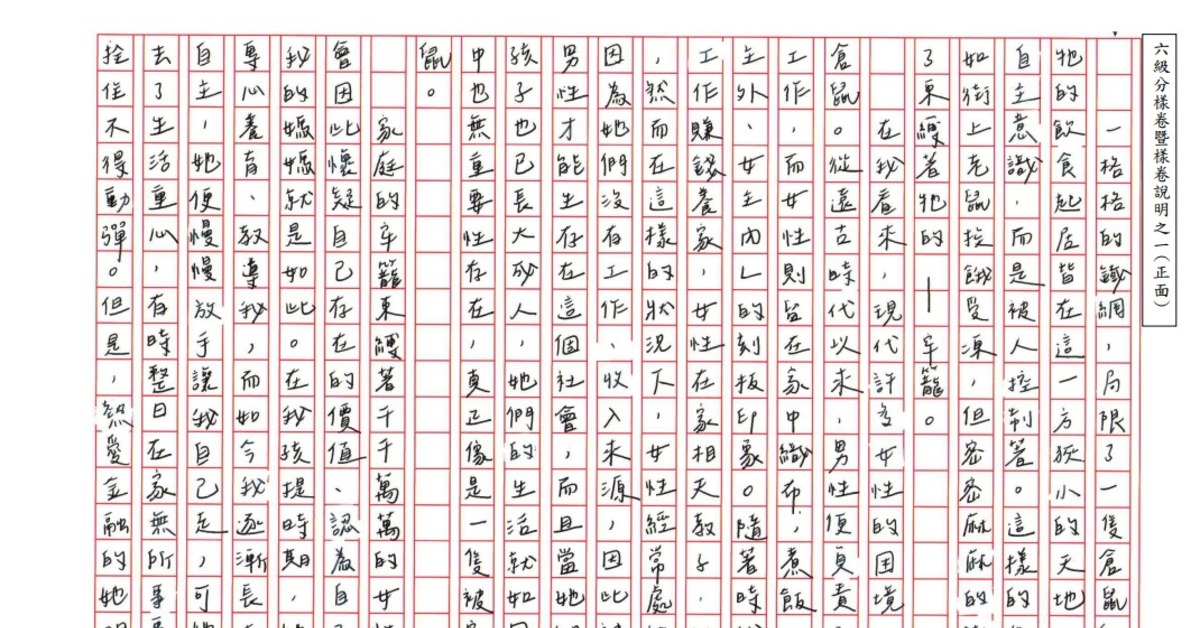 六級分樣卷暨樣卷說明之一（正面）
一格格的鐵網，局限了一隻倉鼠
牠的飲食起居皆在這一方狹小的天地
自主意識，而是被人控制著。這樣的
如街上老鼠挨餓受凍，但密密麻麻的
了束縛著牠的——牢籠。
在我看來，現代許多女性的困境
倉鼠。從遠古時代以來，男性便負責
工作，而女性則留在家中織布，煮飯
主外、女主內」的刻板印象。隨著時
工作賺錢養家，女性在家相夫教子，
，然而在這樣的狀況下，女性經常處
因為她們沒有工作、收入來源，因此
男性才能生存在這個社會，而且當她
孩子也已長大成人，她們的生活就如
中也無重要性存在，真正像是一隻被
鼠。
家庭的牢籠束縛著千千萬萬的女
會因此懷疑自己存在的價值、認為自
我的媽媽就是如此。在我孩提時期，
專心養育、教導我，而如今我逐漸長
自主，她便慢慢放手讓我自己走，可
去了生活重心，有時整日在家無所事
拴住不得動彈。但是，熱愛金融的她